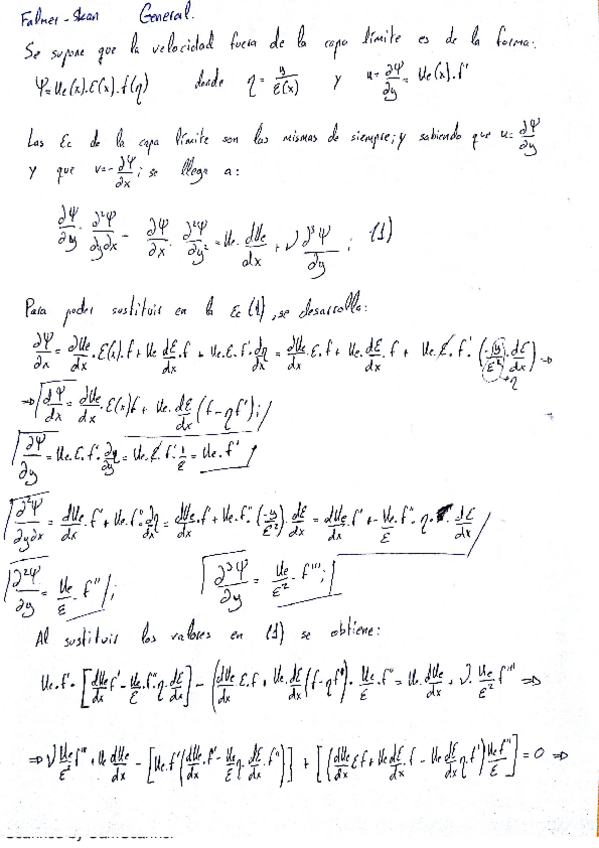 Falner-Skan General.
Se supone que la velocidad fuera de la capa límite es de la forma:
Ψ=Ue(x).ε(x).f(η) donde η = y/ε(x) y u=∂Ψ/∂y = Ue(x).f'
Las Ec de la capa límite son las mismas de siempre; y sabiendo que u=∂Ψ/∂y
y que v=-∂Ψ/∂x; se llega a:
∂Ψ/∂y · ∂²Ψ/∂y∂x - ∂Ψ/∂x · ∂²Ψ/∂y² = Ue · dUe/dx + ν ∂³Ψ/∂y ; (1)
Para poder sustituir en la Ec (1), se desarrolla:
∂Ψ/∂x = ∂Ue/dx · ε(x).f + Ue dε/dx .f + Ue.ε.f' · dη/dx = dUe/dx · ε.f + Ue. dε/dx .f + Ue.ε.f' · (-y/ε² · dε/dx) →η
⇒ dΨ/dx = dUe/dx · ε(x)f + Ue. dε/dx (f-ηf');
∂Ψ/∂y = Ue.ε.f' · ∂η/∂y = Ue.ε.f' · 1/ε = Ue.f'
∂²Ψ/∂y∂x = dUe/dx · f' + Ue.f'' · ∂η/dx = dUe/dx .f' + Ue.f'' · (-y/ε²) · dε/dx = dUe/dx .f' + - Ue/ε .f'' · η · dε/dx
∂²Ψ/∂y = Ue/ε · f'' ; ∂³Ψ/∂y = Ue/ε² · f''' ;
Al sustituir los valores en (1) se obtiene:
Ue.f' · [dUe/dx f' - Ue/ε .f''.η. dε/dx] - (dUe/dx ε.f + Ue. dε/dx (f-ηf') · Ue/ε .f'' = Ue. dUe/dx + ν. Ue/ε² f''' ⇒
⇒ ν Ue/ε² f''' + Ue dUe/dx - [Ue.f' (dUe/dx .f' - Ue/ε η. dε/dx .f'')] + [(dUe/dx εf + Ue dε/dx .f - Ue dε/dx η f') Ue f''/ε] = 0 ⇒